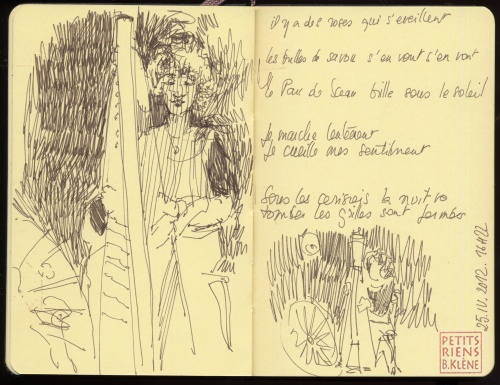 il y a des roses qui s'éveillent
les bulles de savon s'en vont s'en vont
le Parc de Sceaux brille sous le soleil
Je marche lentement
Je cueille mes sentiments
Sous les cerisiers la nuit va
tomber les grilles sont fermées
25.IV.2012. 16H22
PETITS
RIENS
B.KLÈNE